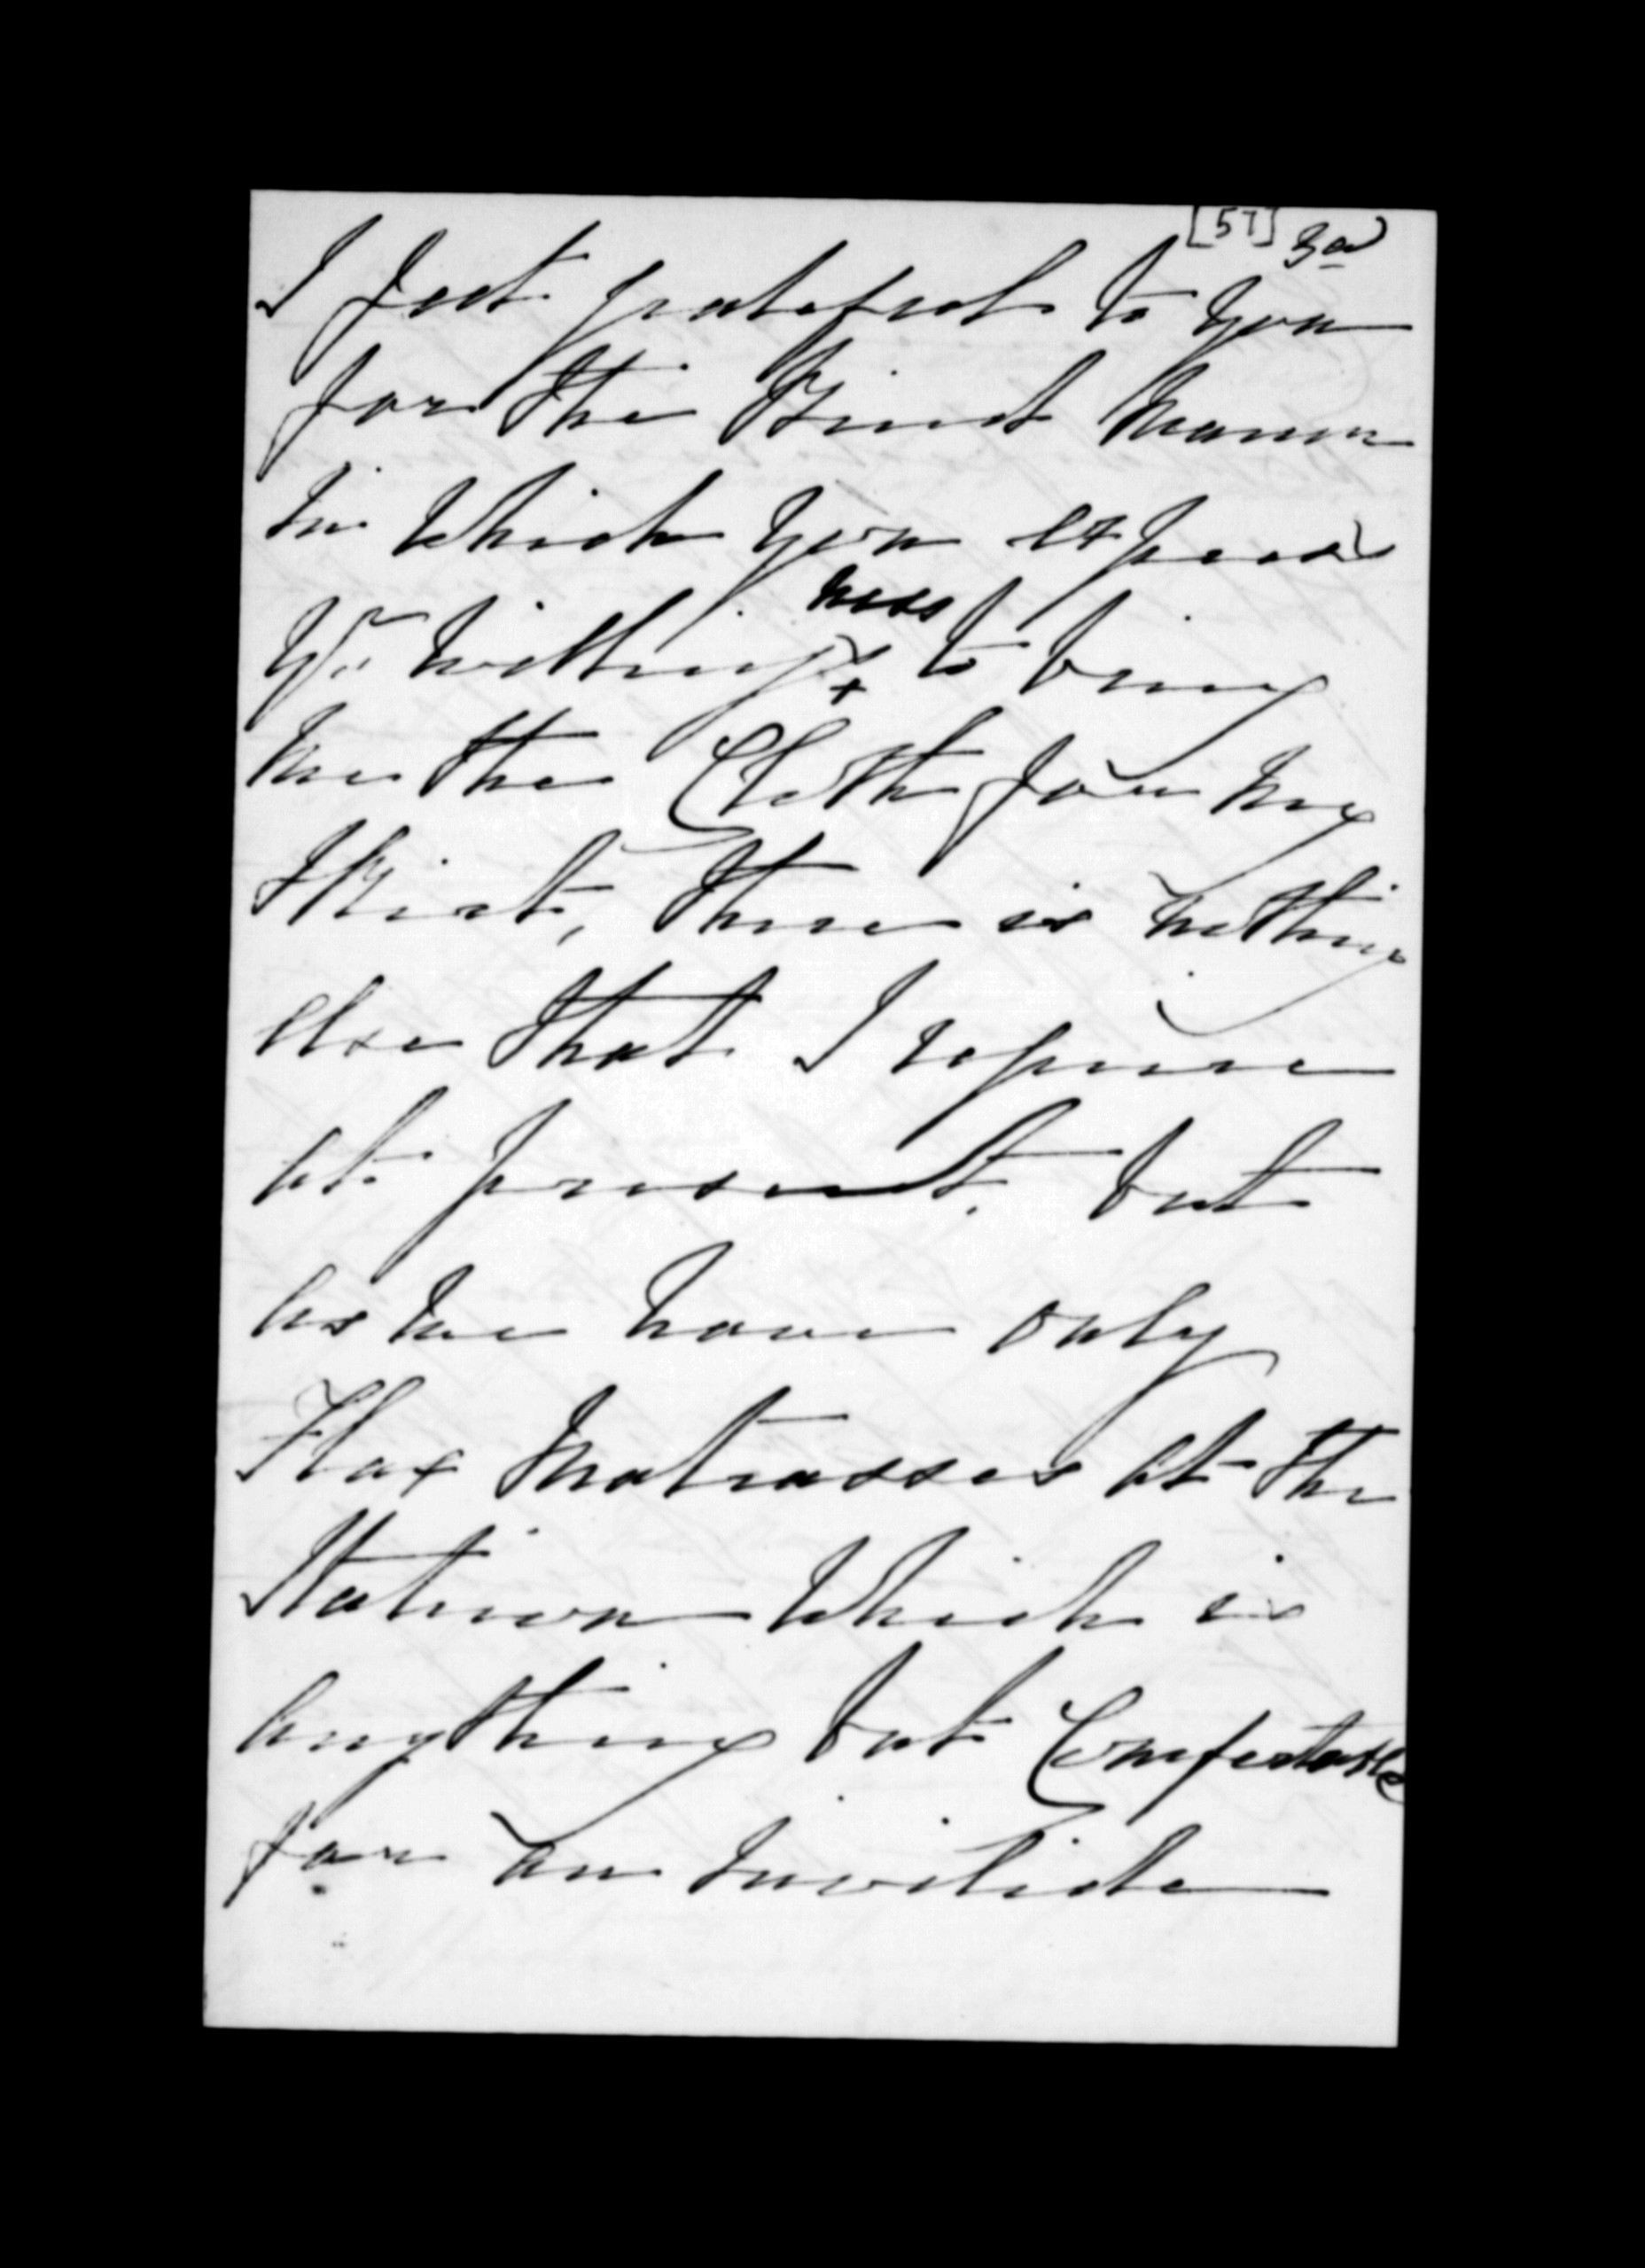 [57] 3d
I feel grateful to you
for the Kind manner
in which you express
yr. willingness to bring
me the Cloth for my
Skirt, there is nothing
else that I require
at present, but
as we have only
Flax Matrasses at the
Station which is
anything but Comfortable
for an invalide